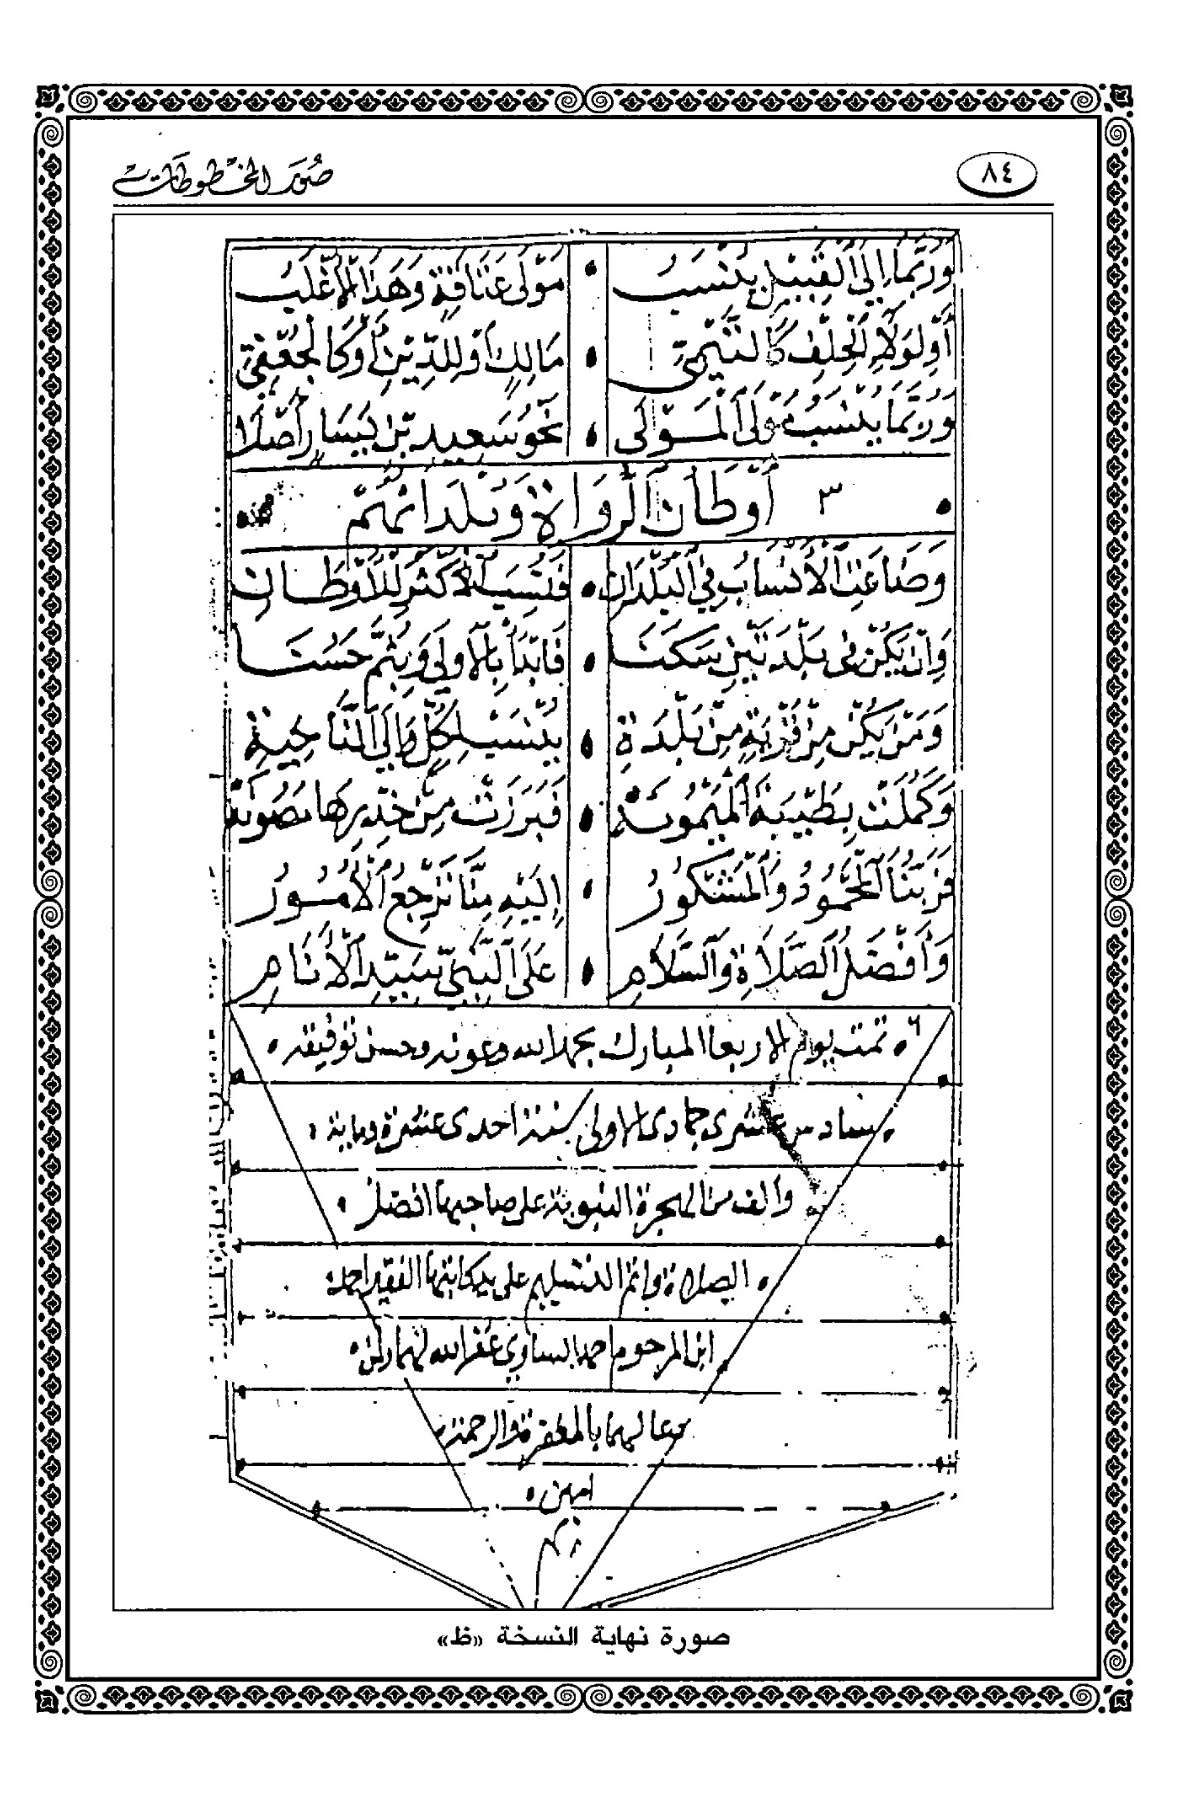 صُوَر المخطوطات
٨٤
وَرُبَّمَا إِلَى الْقَبِيلِ يُنْسَبُ • مَوْلَى عَتَاقَةٍ وَهَذَا الْأَغْلَبُ
أَوْ لِوَلَاءِ الْحِلْفِ كَالتَّيْمِيِّ • مَالِكٍ أَوْ لِلدِّينِ أَوْ كَالْجُعْفِيِّ
وَرُبَّمَا يُنْسَبُ مَوْلَى الْمَوْلَى • نَحْوُ سَعِيدِ بْنِ يَسَارٍ أَصْلًا
٣ أَوْطَانُ الرُّوَاةِ وَبُلْدَانُهُمْ
وَضَاعَتِ الْأَنْسَابُ فِي الْبُلْدَانِ • فَنُسِبَ الْأَكْثَرُ لِلْأَوْطَانِ
وَإِنْ يَكُنْ فِي بَلْدَتَيْنِ سَكَنَا • فَابْدَأْ بِالْأُولَى وَبِثُمَّ حَسُنَا
وَمَنْ يَكُنْ مِنْ قَرْيَةٍ مِنْ بَلْدَةِ • يُنْسَبْ لِكُلٍّ وَإِلَى النَّاحِيَةِ
وَكَمُلَتْ بِطَيْبَةَ الْمَيْمُونَة • فَبَرَزَتْ مِنْ خِدْرِهَا مَصُونَة
فَرَبُّنَا الْمَحْمُودُ وَالْمَشْكُورُ • إِلَيْهِ مِنَّا تَرْجِعُ الْأُمُورُ
وَأَفْضَلُ الصَّلَاةِ وَالسَّلَامِ • عَلَى النَّبِيِّ سَيِّدِ الْأَنَامِ
٦ تمت يوم الاربعا المبارك بحمد الله وعونه وحسن توفيقه
سادس عشرى جمادى الاولى سنة احدى عشرة وماية
والف من الهجرة النبوية على صاحبها افضل
الصلاة واتم التسليم على يد كاتبها الفقير احمد
ابن المرحوم احمد غفر الله لهما ولمن
دعا لهما بالمغفرة والرحمة
امين
صورة نهاية النسخة «ظ»